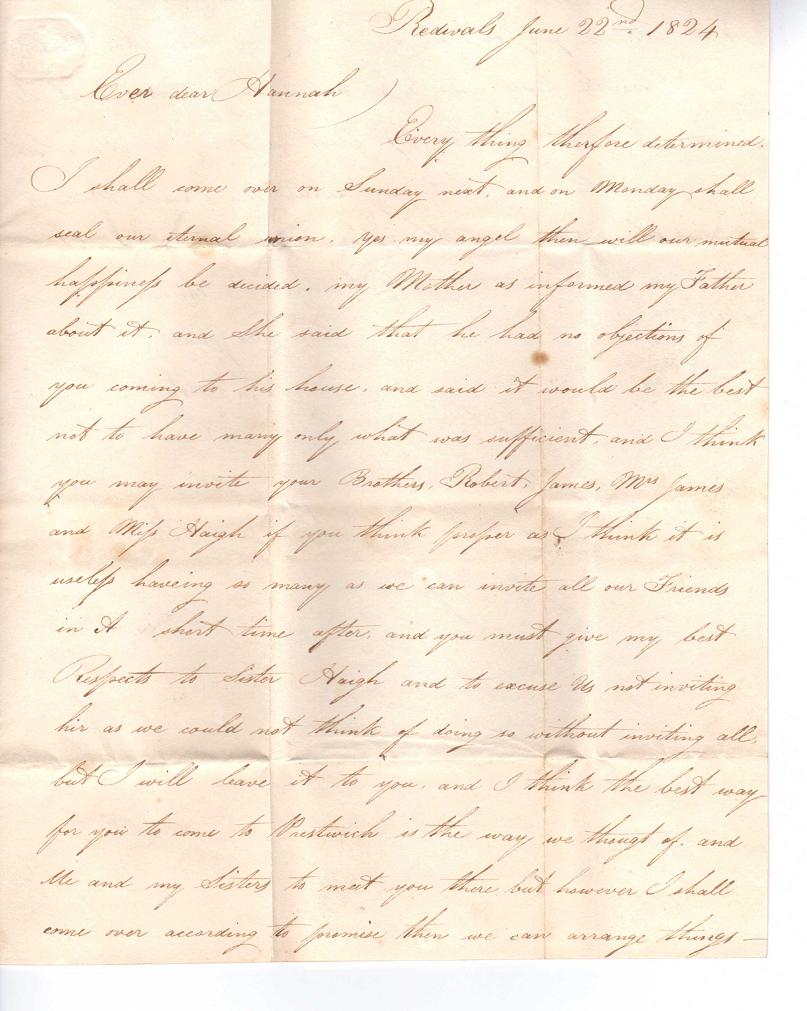 Redivals June 22nd. 1824
Ever dear Hannah
Every thing therfore determined.
I shall come over on Sunday next, and on Monday shall
seal our eternal union. yes my angel then will our mutual
happiness be decided. my Mother as informed my Father
about it. and She said that he had no objections of
you coming to his house. and said it would be the best
not to have many only what was sufficient. and I think
you may invite your Brothers, Robert, James, Mrs James
and Miss Haigh if you think proper as I think it is
useless haveing so many as we can invite all our Friends
in A short time after. and you must give my best
Respects to Sister Haigh and to excuse Us not inviting
hir as we could not think of doing so without inviting all.
but I will leave it to you. and I think the best way
for you to come to Prestwich is the way we thougt of. and
Me and my Sisters to meet you there but however I shall
come over according to promise then we can arrange things—